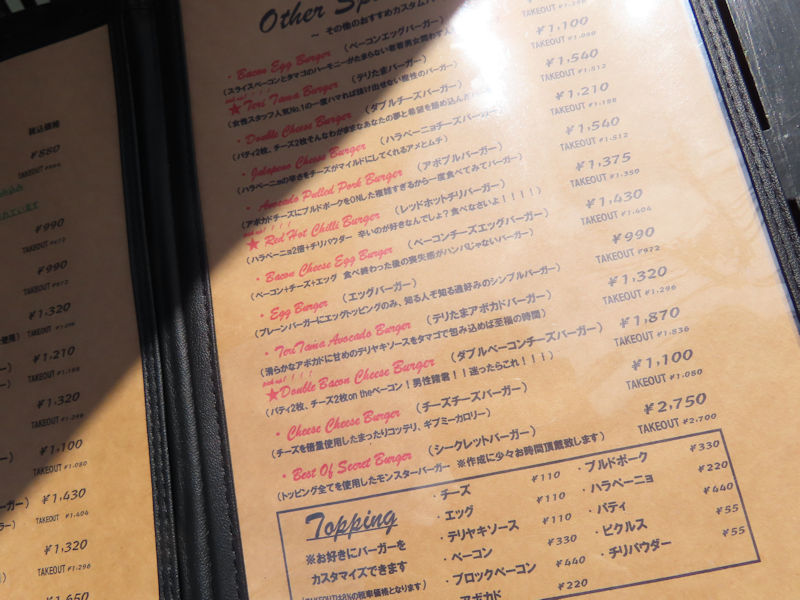 税込価格
¥880
¥990
TAKEOUT ¥972
¥990
TAKEOUT ¥972
¥1,320
TAKEOUT ¥1,296
¥1,210
TAKEOUT ¥1,188
¥1,320
TAKEOUT ¥1,296
¥1,100
TAKEOUT ¥1,080
¥1,430
TAKEOUT ¥1,404
¥1,320
TAKEOUT ¥1,296
¥1,650
Other
～ その他のおすすめカスタム
・Bacon Egg Burger (ベーコンエッグバーガー) ¥1,100
(スライスベーコンとタマゴのハーモニーがたまらない老若男女問わず TAKEOUT ¥1,080
★Teri Tama Burger (テリたまバーガー) ¥1,540
(女性スタッフ人気No.1の一度ハマれば抜け出せない魔性のバーガー) TAKEOUT ¥1,512
・Double Cheese Burger (ダブルチーズバーガー) ¥1,210
(パティ2枚、チーズ2枚そんなわがままなあなたの夢と希望を詰め込んだ TAKEOUT ¥1,188
・Jalapeno Cheese Burger (ハラペーニョチーズバーガー) ¥1,540
(ハラペーニョの辛さをチーズがマイルドにしてくれるアメとムチ) TAKEOUT ¥1,512
・Avocado Pulled Pork Burger (アボプルバーガー) ¥1,375
(アボカドチーズにプルドポークをONした複雑すぎるから一度食べてみてバーガー) TAKEOUT ¥1,350
★Red Hot Chilli Burger (レッドホットチリバーガー) ¥1,430
(ハラペーニョ2倍+チリパウダー 辛いのが好きなんでしょ？食べなさいよ！！！！) TAKEOUT ¥1,404
・Bacon Cheese Egg Burger (ベーコンチーズエッグバーガー) ¥990
(ベーコン+チーズ+エッグ 食べ終わった後の喪失感がハンパじゃないバーガー) TAKEOUT ¥972
・Egg Burger (エッグバーガー) ¥1,320
(プレーンバーガーにエッグトッピングのみ、知る人ぞ知る通好みのシンプルバーガー) TAKEOUT ¥1,296
・TeriTama Avocado Burger (テリたまアボカドバーガー) ¥1,870
(滑らかなアボカドに甘めのテリヤキソースをタマゴで包み込めば至極の時間) TAKEOUT ¥1,836
★Double Bacon Cheese Burger (ダブルベーコンチーズバーガー) ¥1,100
(パティ2枚、チーズ2枚on theベーコン！男性諸君！！迷ったらこれ！！！) TAKEOUT ¥1,080
・Cheese Cheese Burger (チーズチーズバーガー) ¥2,750
(チーズを倍量使用したまったりコッテリ、ギブミーカロリー) TAKEOUT ¥2,700
・Best Of Secret Burger (シークレットバーガー)
(トッピング全てを使用したモンスターバーガー ※作成に少々お時間頂戴致します)
Topping
※お好きにバーガーを
カスタマイズできます
(TAKEOUTは8%の税率価格となります)
・チーズ ¥110
・エッグ ¥110
・テリヤキソース ¥110
・ベーコン ¥330
・ブロックベーコン ¥440
・アボカド ¥220
・プルドポーク ¥330
・ハラペーニョ ¥220
・パティ ¥440
・ピクルス ¥55
・チリパウダー ¥55